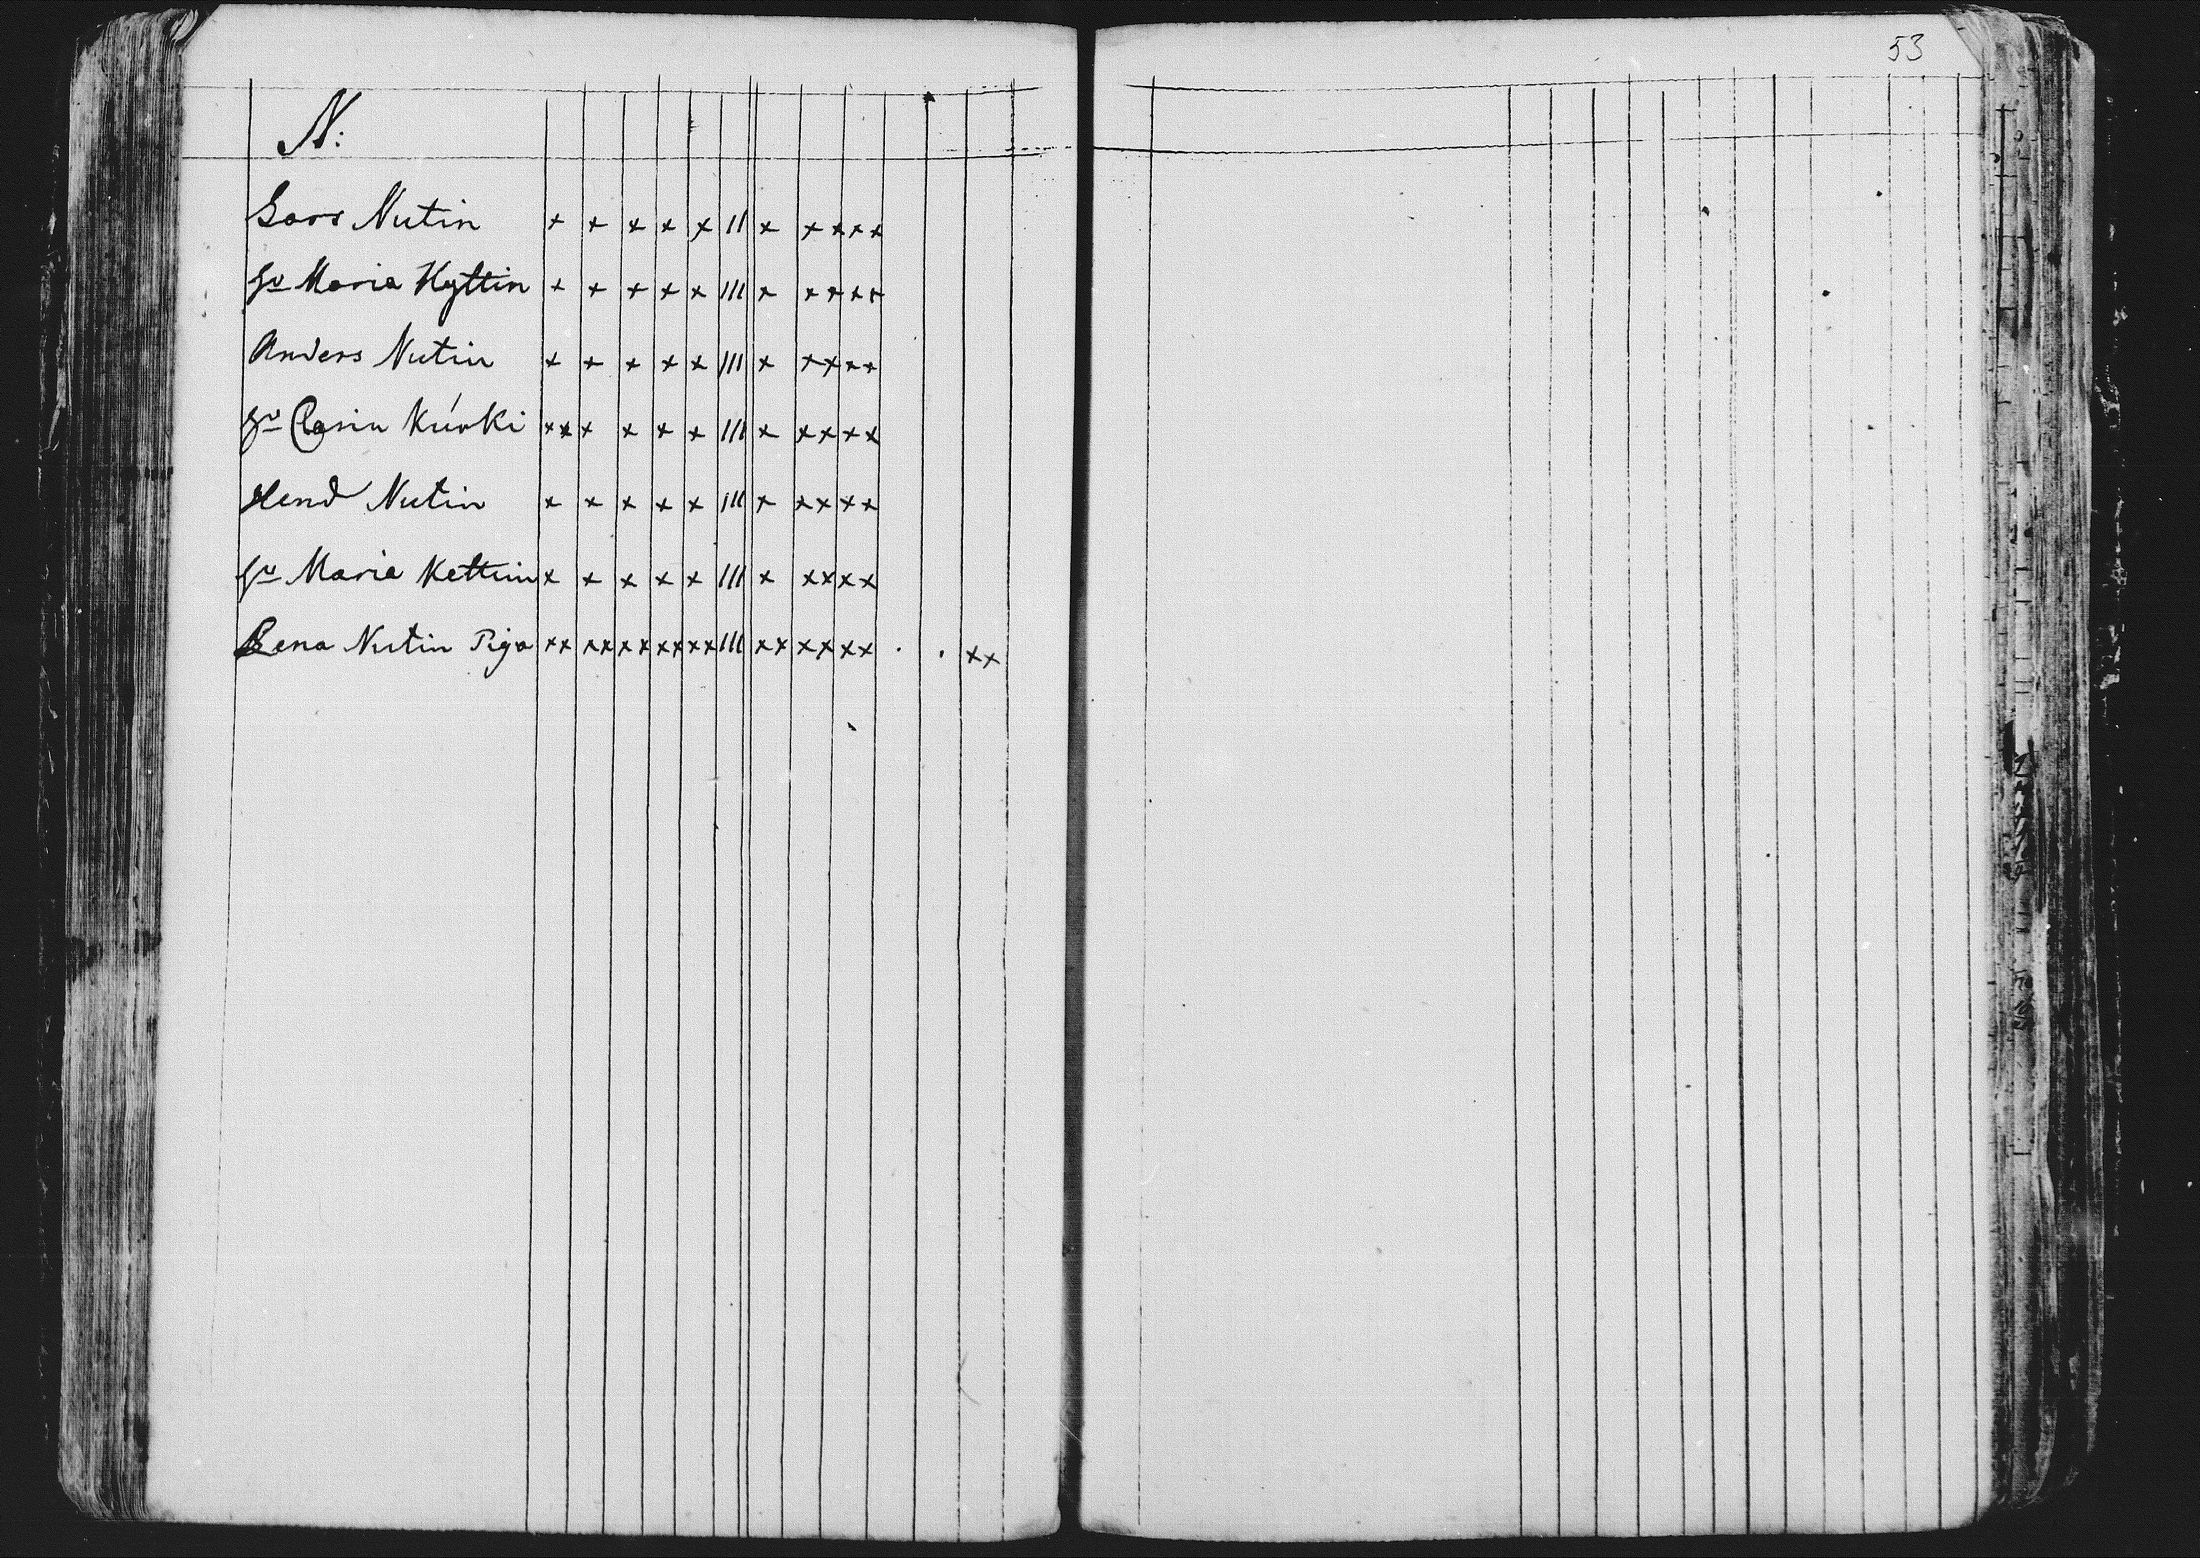 53
N:
Lars Nutin x x x x x II x x x x x
hu Maria Hyttin x x x x x III x x x x x
Anders Nutin x x x x x III x x x x x
hu Carin Kurki x x x x x x III x x x x x
Hend Nutin x x x x x III x x x x x
hu Maria Kettuin x x x x x III x x x x x
Lena Nutin Piga xx xx xx xx xx III xx xx xx . . xx